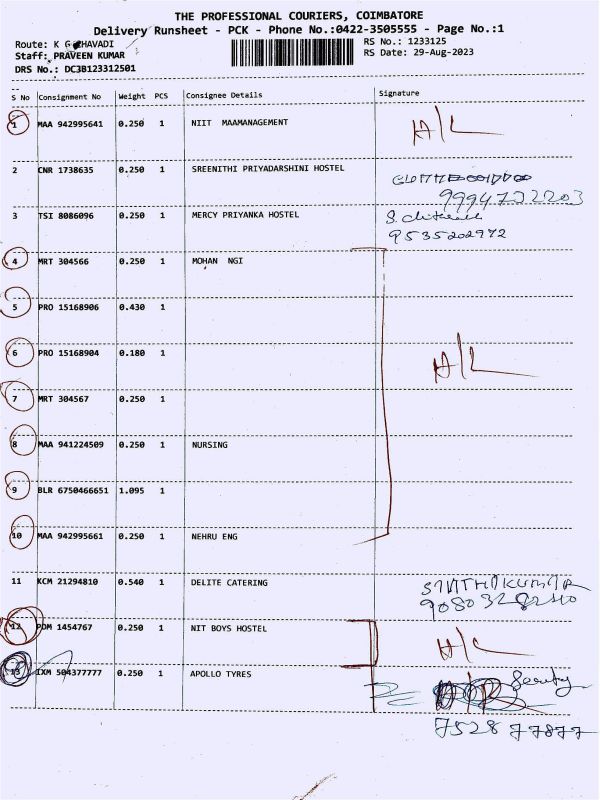 THE PROFESSIONAL COURIERS, COIMBATORE
Delivery Runsheet - PCK - Phone No.:0422-3505555 - Page No.:1
Route: K G CHAVADI
RS No.: 1233125
Staff: PRAVEEN KUMAR
RS Date: 29-Aug-2023
DRS No.: DC3B123312501
S No Consignment No Weight PCS Consignee Details Signature
1 MAA 942995641 0.250 1 NIIT MAAMANAGEMENT H/L
2 CNR 1738635 0.250 1 SREENITHI PRIYADARSHINI HOSTEL
9994722203
3 TSI 8086096 0.250 1 MERCY PRIYANKA HOSTEL
9535202972
4 MRT 304566 0.250 1 MOHAN NGI
5 PRO 15168906 0.430 1
6 PRO 15168904 0.180 1 H/L
7 MRT 304567 0.250 1
8 MAA 941224509 0.250 1 NURSING
9 BLR 6750466651 1.095 1
10 MAA 942995661 0.250 1 NEHRU ENG
11 KCM 21294810 0.540 1 DELITE CATERING
12 PDM 1454767 0.250 1 NIT BOYS HOSTEL H/L
13 IXM 504377777 0.250 1 APOLLO TYRES
7528 77877